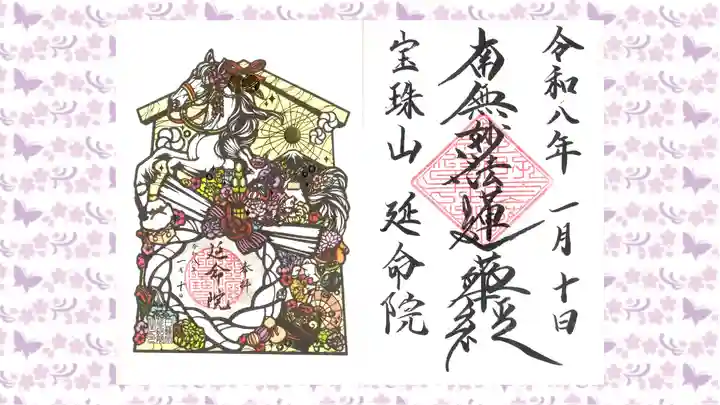 令和八年 一月十日
南無妙法蓮華経
宝珠山 延命院
奉拝
延命院